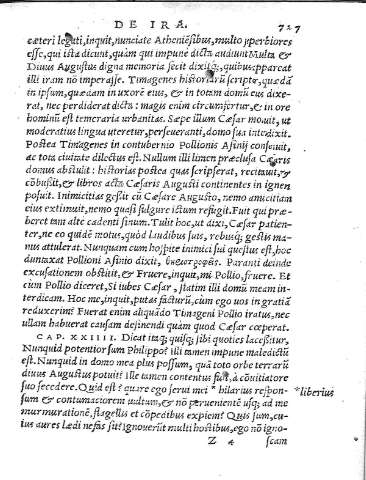 DE IRA. 727
cæteri legati, inquit, nunciate Atheniēsibus, multo superbiores
esse, qui ista dicunt, quàm qui impune dicta audiunt. Multa &
Diuus Augustus digna memoria fecit dixitq́;, quibus appareat
illi iram nō imperasse. Timagenes historiarū scriptor, quædā
in ipsum, quædam in vxorē eius, & in totam domū eius dixe-
rat, nec perdiderat dicta: magis enim circumfertur, & in ore
hominū est temeraria vrbanitas. Sæpe illum Cæsar monuit, vt
moderatius lingua vteretur, perseueranti, domo sua interdixit.
Postea Timagenes in contubernio Pollionis Asinij consenuit,
ac tota ciuitate dilectus est. Nullum illi limen præclusa Cæsaris
domus abstulit: historias postea quas scripserat, recitauit, &
cōbussit, & libros acta Cæsaris Augusti continentes in ignem
posuit. Inimicitias gessit cū Cæsare Augusto, nemo amicitiam
eius extimuit, nemo quasi fulgure ictum refugit. Fuit qui præ-
beret tam alte cadenti sinum. Tulit hoc, vt dixi, Cæsar patien-
ter, ne eo quidē motus, quòd laudibus suis, rebusq́; gestis ma-
nus attulerat. Nunquam cum hospite inimici sui questus est, hoc
duntaxat Pollioni Asinio dixit, Paranti deinde
excusationem obstitit, & Fruere, inquit, mi Pollio, fruere. Et
cùm Pollio diceret, Si iubes Cæsar, statim illi domū meam in-
terdicam. Hoc me, inquit, putas facturū, cùm ego vos in gratiā
reduxerim? Fuerat enim aliquādo Timageni Pollio iratus, nec
ullam habuerat causam desinendi quàm quòd Cæsar cœperat.
CAP. XXIIII. Dicat itaq; quisq́;, sibi quoties lacessitur,
Nunquid potentior sum Philippo? illi tamen impune maledictū
est. Nunquid in domo mea plus possum, quā toto orbe terrarū
diuus Augustus potuit? ille tamen contentus fuit, à cōuitiatore
suo secedere. Quid est? quare ego serui mei * hilarius respon- *liberius
sum & contumaciorem vultum, & nō peruenientē vsq; ad me
murmurationē, flagellis et cōpedibus expiem? Quis sum, cu-
ius aures lædi nefas sit? ignouerūt multi hostibus, ego nō igno-
Z 4 scam